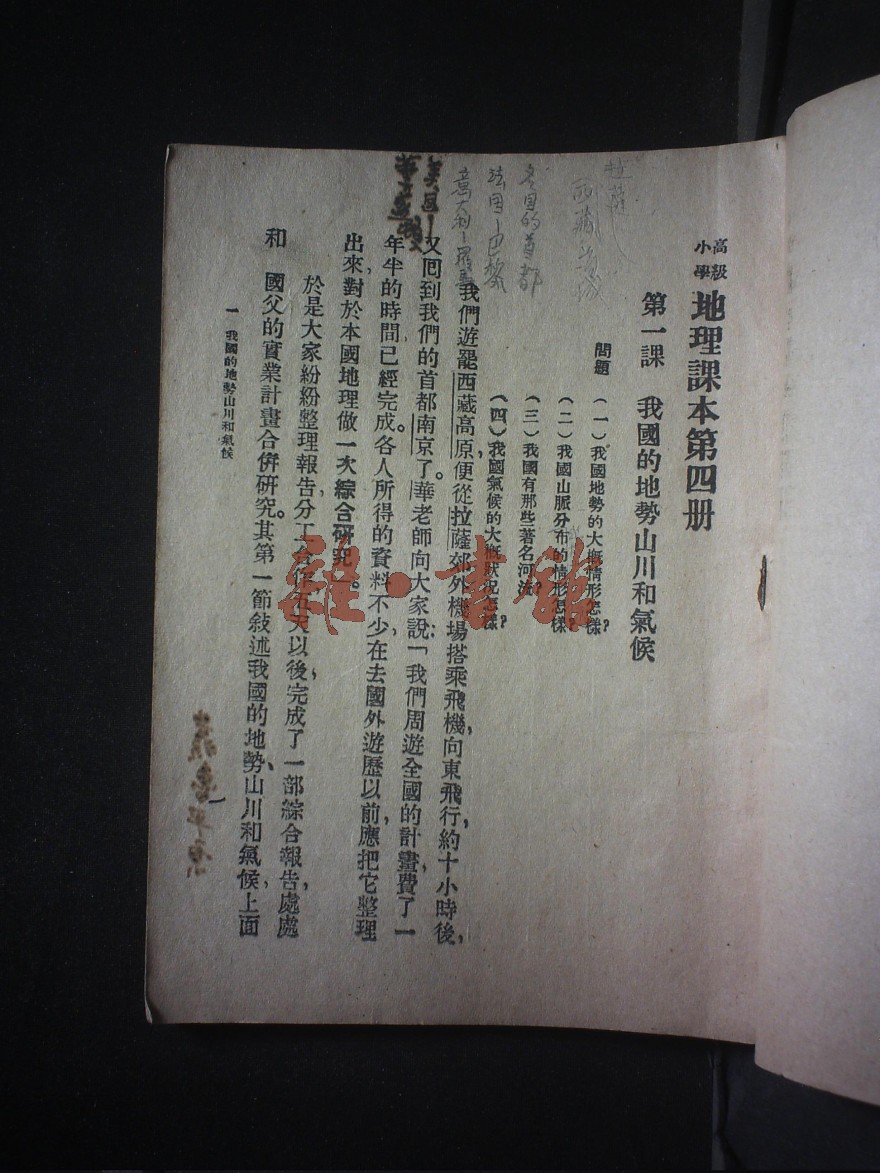 高級
小學
地理課本第四册
第一課　我國的地勢山川和氣候
問題
(一)我國地勢的大概情形怎樣?
(二)我國山脈分布的情形怎樣?
(三)我國有那些著名河流?
(四)我國氣候的大概狀況怎樣?
我們遊罷西藏高原，便從拉薩郊外機場搭乘飛機，向東飛行，約十小時後，
又回到我們的首都南京了。華老師向大家說：「我們周遊全國的計畫，費了一
年半的時間，已經完成。各人所得的資料不少，在去國外遊歷以前，應把它整理
出來，對於本國地理做一次綜合研究。」
於是大家紛紛整理報告，分工合作，五天以後，完成了一部綜合報告，處處
和　國父的實業計畫合併研究。其第一節敍述我國的地勢、山川和氣候，上面
一　我國的地勢山川和氣候
西藏
各國的首都
法国—巴黎
意大利—羅馬
美国—
華
平原
雜·書館